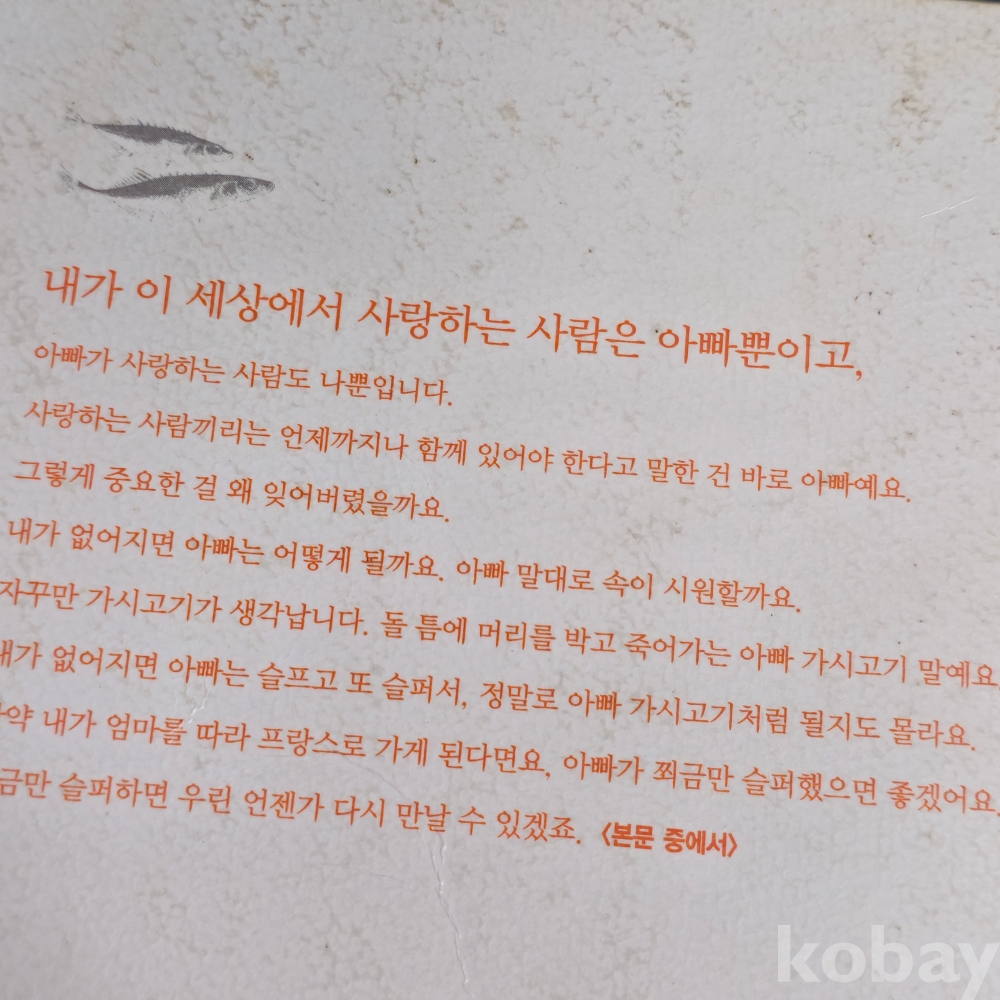 내가 이 세상에서 사랑하는 사람은 아빠뿐이고,
아빠가 사랑하는 사람도 나뿐입니다.
사랑하는 사람끼리는 언제까지나 함께 있어야 한다고 말한 건 바로 아빠예요.
그렇게 중요한 걸 왜 잊어버렸을까요.
내가 없어지면 아빠는 어떻게 될까요. 아빠 말대로 속이 시원할까요.
자꾸만 가시고기가 생각납니다. 돌 틈에 머리를 박고 죽어가는 아빠 가시고기 말예요
내가 없어지면 아빠는 슬프고 또 슬퍼서, 정말로 아빠 가시고기처럼 될지도 몰라요.
내가 엄마를 따라 프랑스로 가게 된다면요, 아빠가 쬐금만 슬퍼했으면 좋겠어요.
금만 슬퍼하면 우린 언젠가 다시 만날 수 있겠죠. 〈본문 중에서〉
kobay